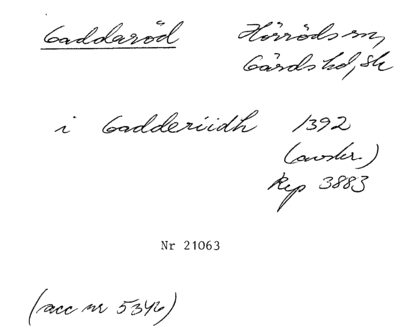 Gaddaröd Hörröds sn,
Gärds hd, Sk
i Gadderiidh 1392
(avskr.)
Rep 3883
Nr 21063
(acc nr 5346)